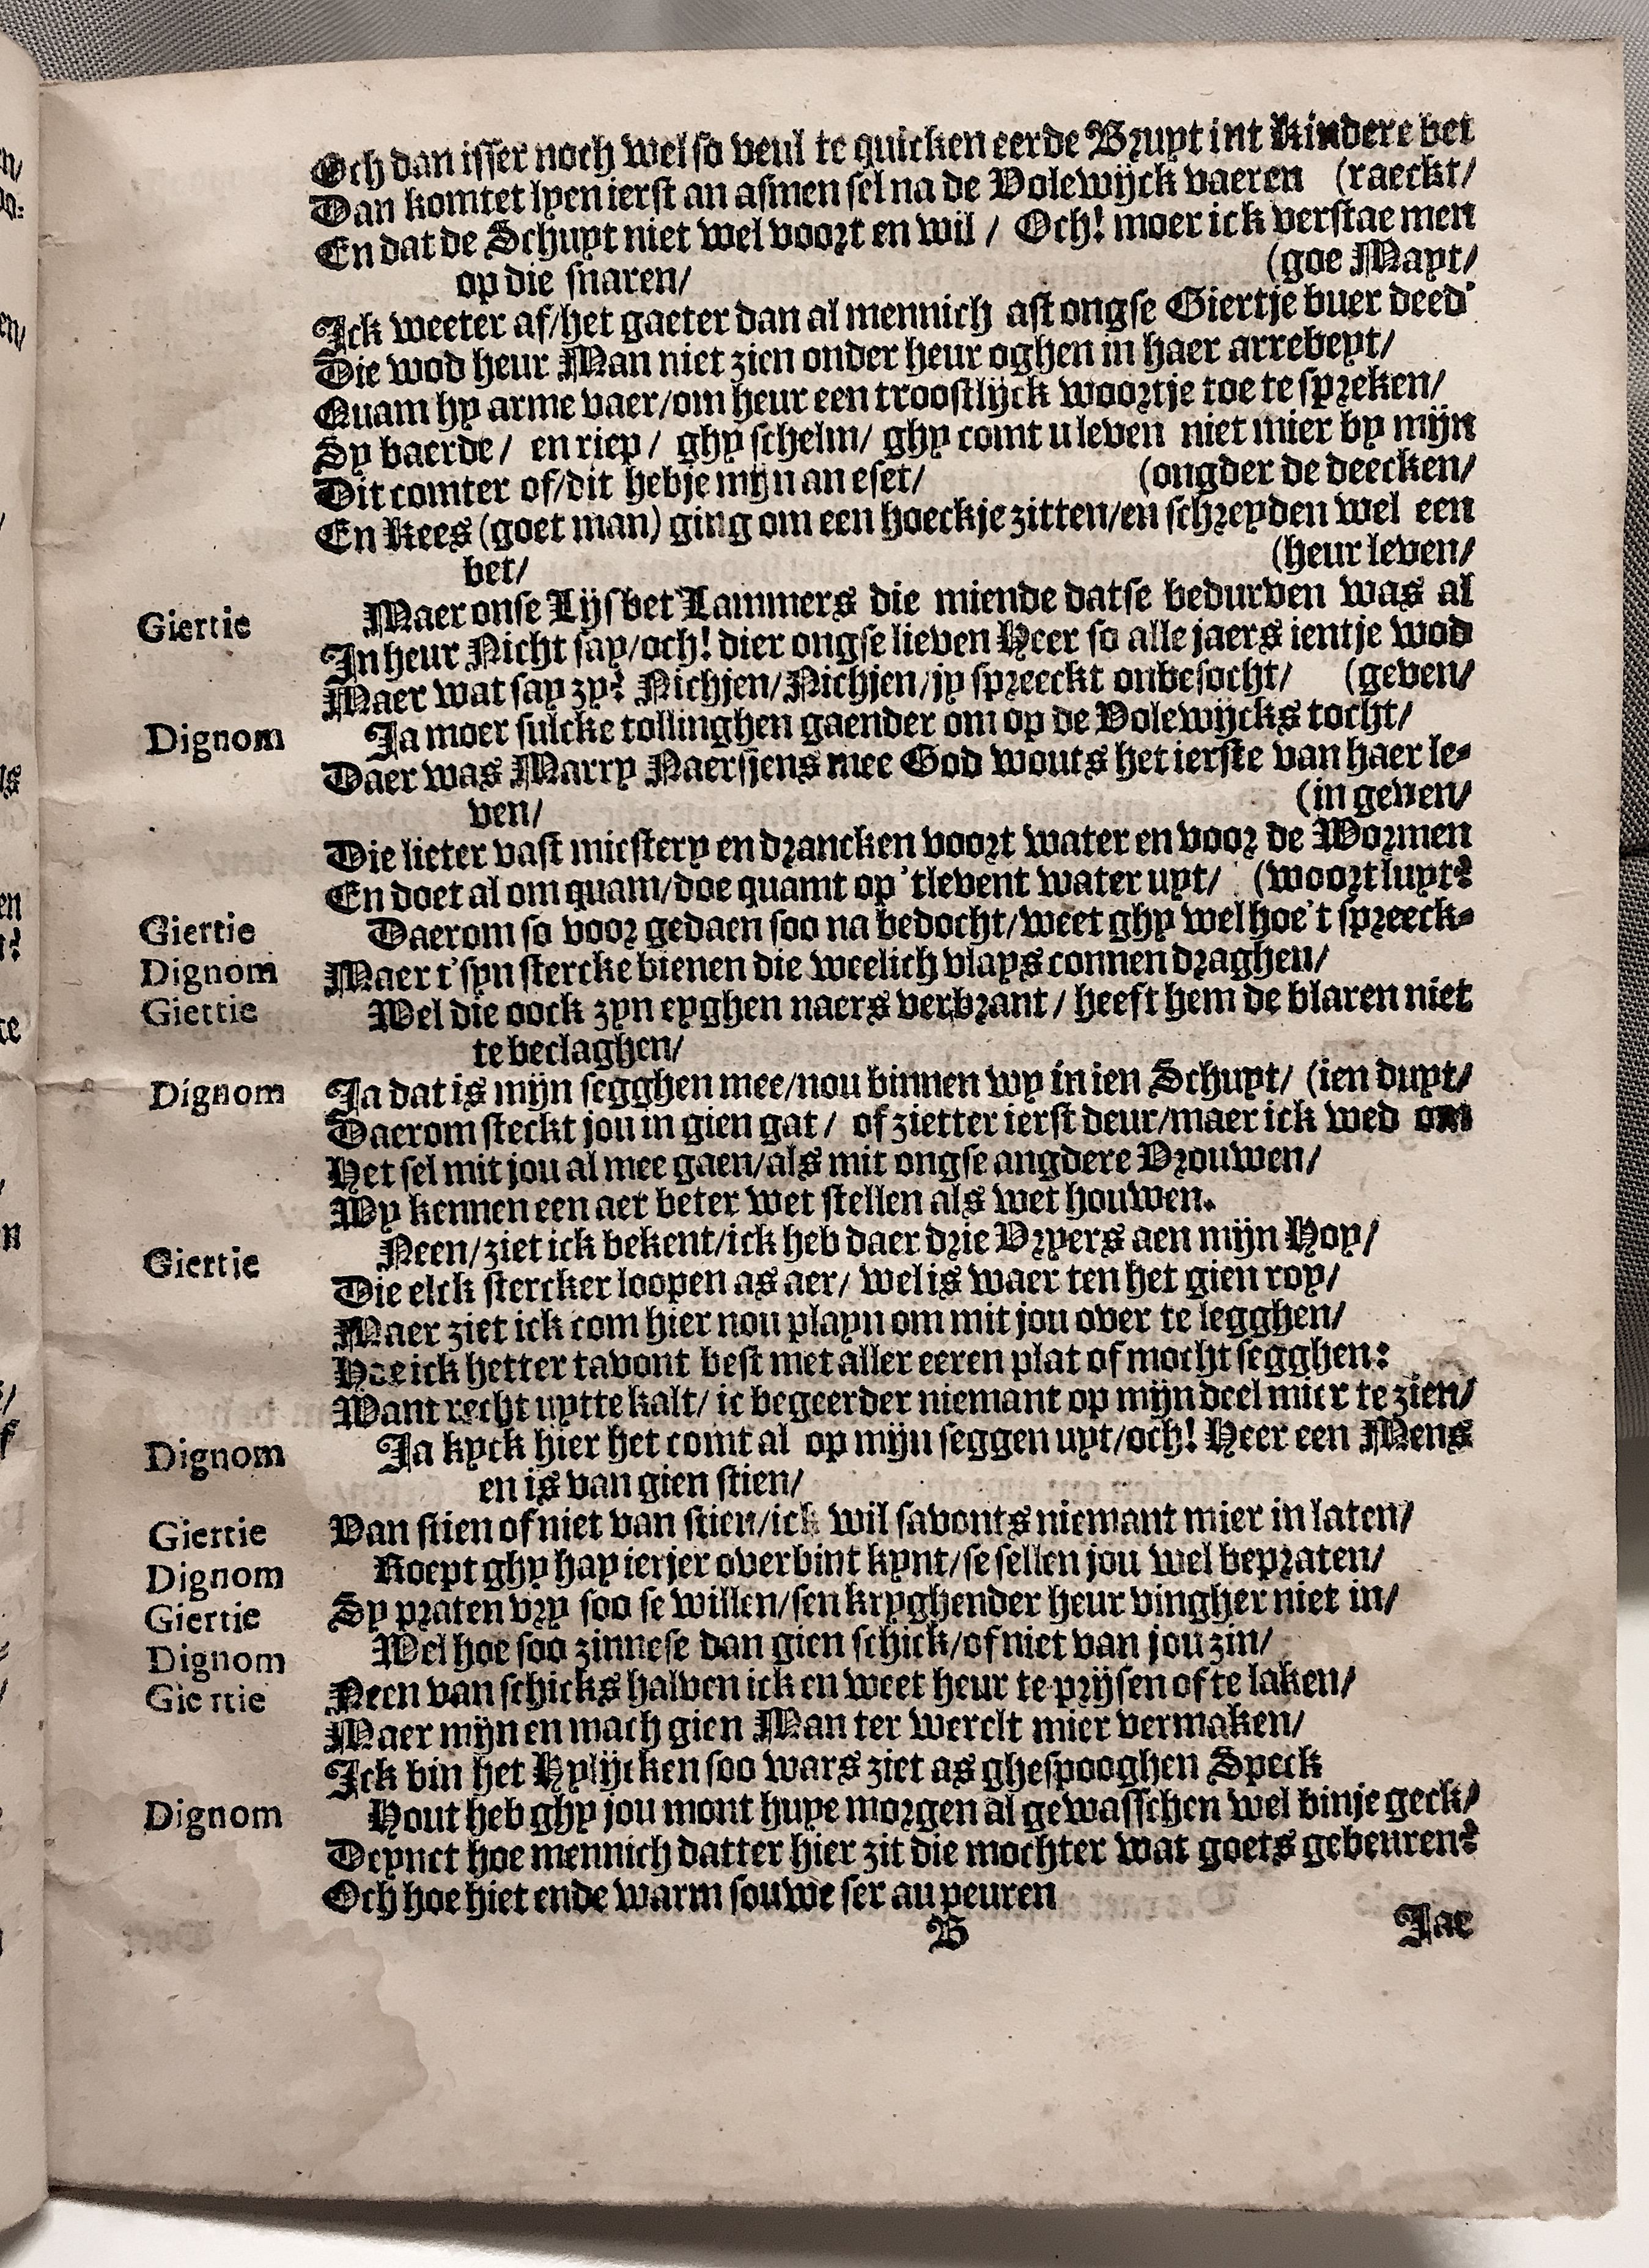 Och dan isser noch wel so veul te quicken eer de Bruyt int Kindere bet
Dan komtet lyen ierst an asmen sel na de Volewijck vaeren (raeckt/
En dat de Schuyt niet wel voort en wil / Och! moer ick verstae men
op die snaren/ (goe Mayt/
Ick weeter af/het gaeter dan al mennich ast ongse Giertje buer deed'
Die wod heur Man niet zien onder heur oghen in haer arrebeyt/
Quam hy arme vaer/om heur een troostlijck woortje toe te spreken/
Sy baerde/ en riep/ ghy schelm/ ghy comt u leven niet mier by mijn
Dit comter of/dit hebje mijn an eset/ (ongder de deecken/
En Kees (goet man) ging om een hoeckje zitten/en schreyden wel een
bet/ (heur leven/
Giertie Maer onse Lijsbet Lammers die miende datse bedurven was al
In heur Nicht say/och! dier ongse lieven Heer so alle jaers ientje wod
Maer wat say zy? Nichjen/Nichjen/jy spreeckt onbesocht/ (geven/
Dignom Ja moer sulcke tollinghen gaender om op de Volewijcks tocht/
Daer was Marry Naersjens mee God wouts het ierste van haer le-
ven/ (in geven/
Die lieter vast miestery en drancken voort water en voor de Wormen
En doet al om quam/doe quamt op 'tlevent water uyt/ (woort luyt?
Giertie Daerom so voor gedaen soo na bedocht/weet ghy wel hoe't spreeck-
Dignom Maer t'syn stercke bienen die weelich vlays connen draghen/
Giettie Wel die oock zyn eyghen naers verbrant / heeft hem de blaren niet
te beclaghen/
Dignom Ja dat is mijn segghen mee/nou binnen wy in ien Schuyt/ (ien duyt/
Daerom steckt jou in gien gat/ of zietter ierst deur/maer ick wed om
Het sel mit jou al mee gaen/als mit ongse angdere Vrouwen/
Wy kennen een aer beter wet stellen als wet houwen.
Giertie Neen/ziet ick bekent/ick heb daer drie Vryers aen mijn Hoy/
Die elck stercker loopen as aer/ wel is waer ten het gien roy/
Maer ziet ick com hier nou playn om mit jou over te legghen/
Hoe ick hetter tavont best met aller eeren plat of mocht segghen:
Want recht uytte kalt/ ic begeerder niemant op mijn deel mier te zien/
Dignom Ja kyck hier het comt al op mijn seggen uyt/och! Heer een Mens
en is van gien stien/
Giertie Van stien of niet van stien/ick wil savonts niemant mier in laten/
Dignom Roept ghy hay ierjer over bint kynt/se sellen jou wel bepraten/
Giertie Sy praten vry soo se willen/sen kryghender heur vingher niet in/
Dignom Wel hoe soo zinnese dan gien schick/of niet van jou zin/
Gie rtie Neen van schicks halven ick en weet heur te prijsen of te laken/
Maer mijn en mach gien Man ter werelt mier vermaken/
Ick bin het Hylijcken soo wars ziet as ghespooghen Speck
Dignom Hout heb ghy jou mont huye morgen al gewasschen wel binje geck/
Deynct hoe mennich datter hier zit die mochter wat goets gebeuren?
Och hoe hiet ende warm souwe ser au peuren
B Jae